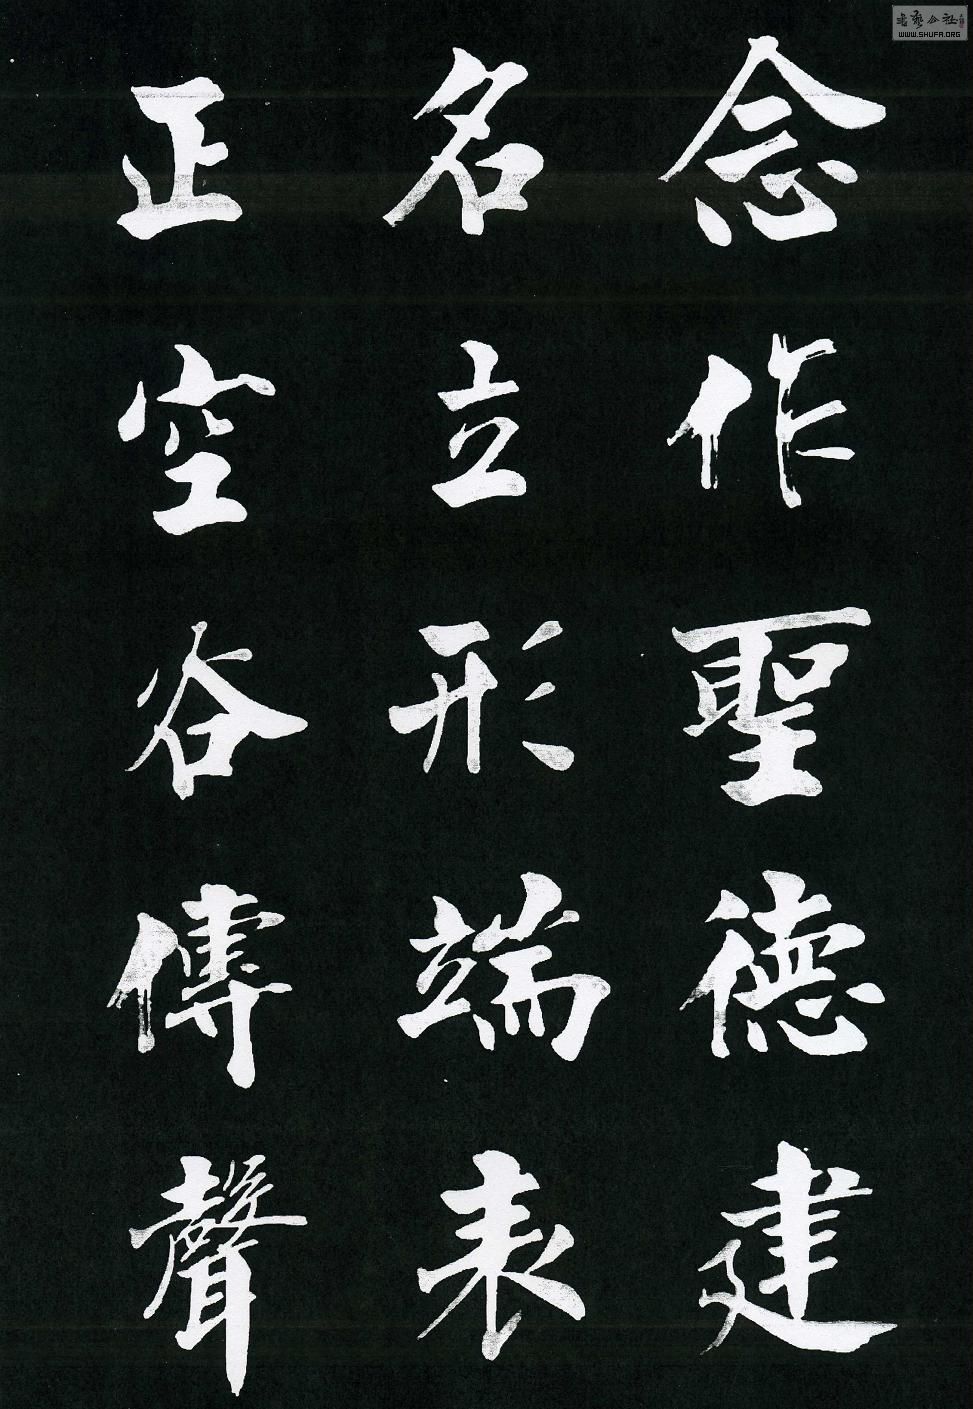 念作聖德建
名立形端表
正空谷傳聲
WWW.SHUFA.ORG